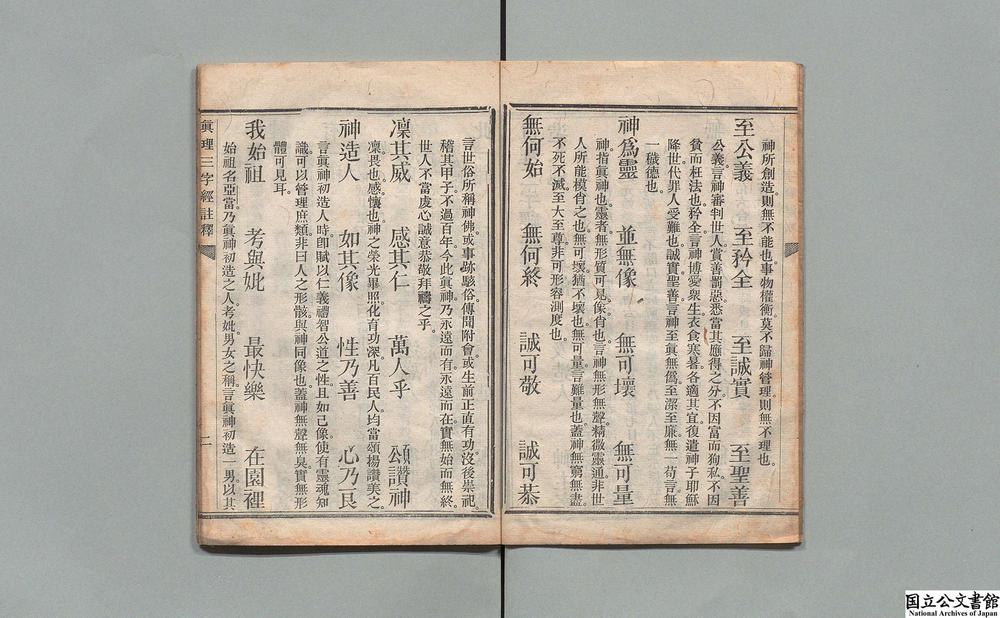 神所創造。則無不能也。事物權衡。莫不歸神管理。則無不理也。
至公義　至矜全　至誠實　至聖善
公義言神審判世人。賞善罰惡。悉當其應得之分。不因富而狥私。不因
貧而枉法也。矜全言神博愛衆生。衣食寒暑。各適其宜。復遣神子耶穌
降世代罪人受難也。誠實聖善言神至眞無僞。至潔至廉。無一苟言。無
一穢德也。
神爲靈　並無像　無可壞　無可量
神指眞神也。靈者無形質可見。像肖也。言神無形無聲。精微靈通。非世
人所能模肖之也。無可壞。猶不壞也。無可量。言難量也。蓋神無窮無盡。
不死不滅。至大至尊。非可形容測度也。
無何始　無何終　誠可敬　誠可恭
言世俗所稱神佛。或事跡駭俗。傳聞附會。或生前正直有功。沒後崇祀。
稽其甲子。不過百年。今此眞神。乃永遠而有。永遠而在。實無始而無終。
世人不當虔心誠意。恭敬拜禱之乎。
凜其威　感其仁　萬人乎　頌讚神
凜畏也。感懷也。神之榮光畢照。化育功深。凡百民人。均當頌揚讚美之。
神造人　如其像　性乃善　心乃良
言眞神初造人時。卽賦以仁義禮智公道之性。且如己像。使有靈魂知
識。可以管理庶類。非曰人之形骸。與神同像也。蓋神無聲無臭。實無形
體可見耳。
我始祖　考與妣　最快樂　在園裡
始祖名亞當。乃眞神初造之人。考妣男女之稱。言眞神初造一男。以其
眞理三字經註釋
二
国立公文書館
National Archives of Japan